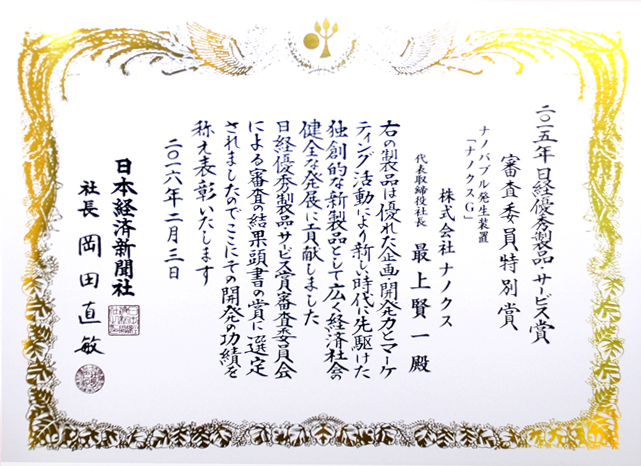 二〇一五年日経優秀製品・サービス賞
審査委員特別賞
ナノバブル発生装置
「ナノクスG」
株式会社ナノクス
代表取締役社長 最上賢一殿
右の製品は優れた企画開発力とマーケ
ティング活動により新しい時代に先駆けた
独創的な新製品として広く経済社会の
健全な発展に貢献しました
日経優秀製品・サービス賞審査委員会
による審査の結果頭書の賞に選定
されましたのでここにその開発の功績を
称え表彰いたします
二〇一六年二月三日
日本経済新聞社
社長 岡田直敏